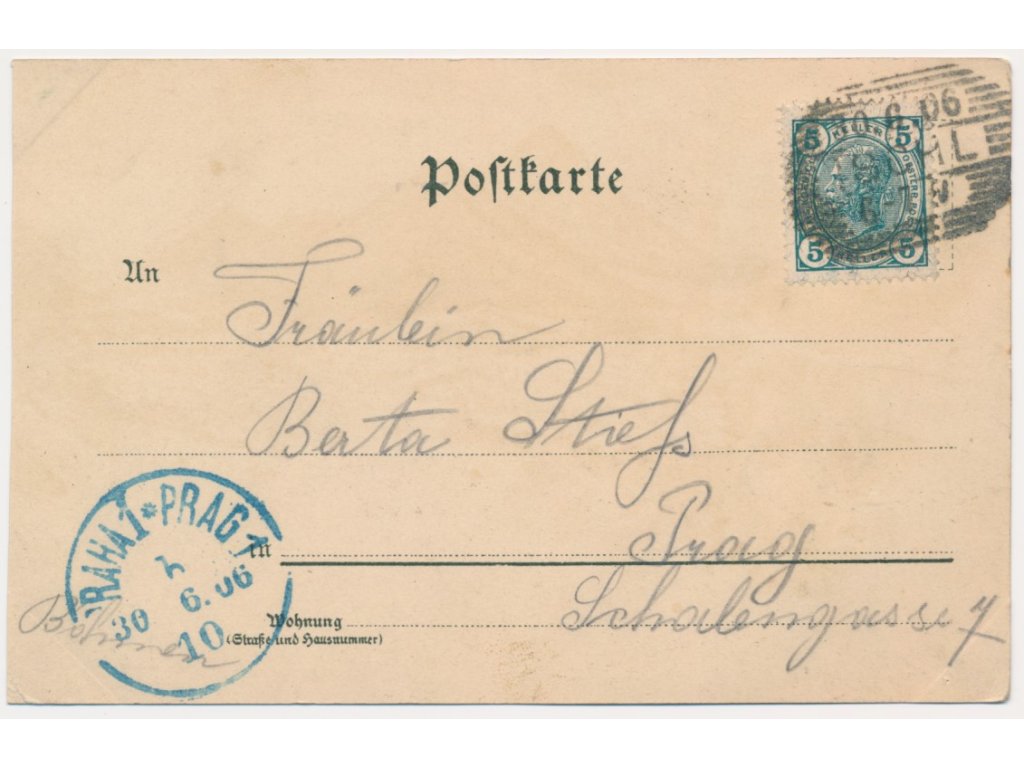 Postkarte
5 HELLER 5
5 HELLER 5
6.06
An
Fräulein
Berta Stiefs
in Prag
Wohnung
(Straße und Hausnummer)
Schalengasse 7
Böhmen
PRAHA 1 * PRAG 1
30 6.06
10